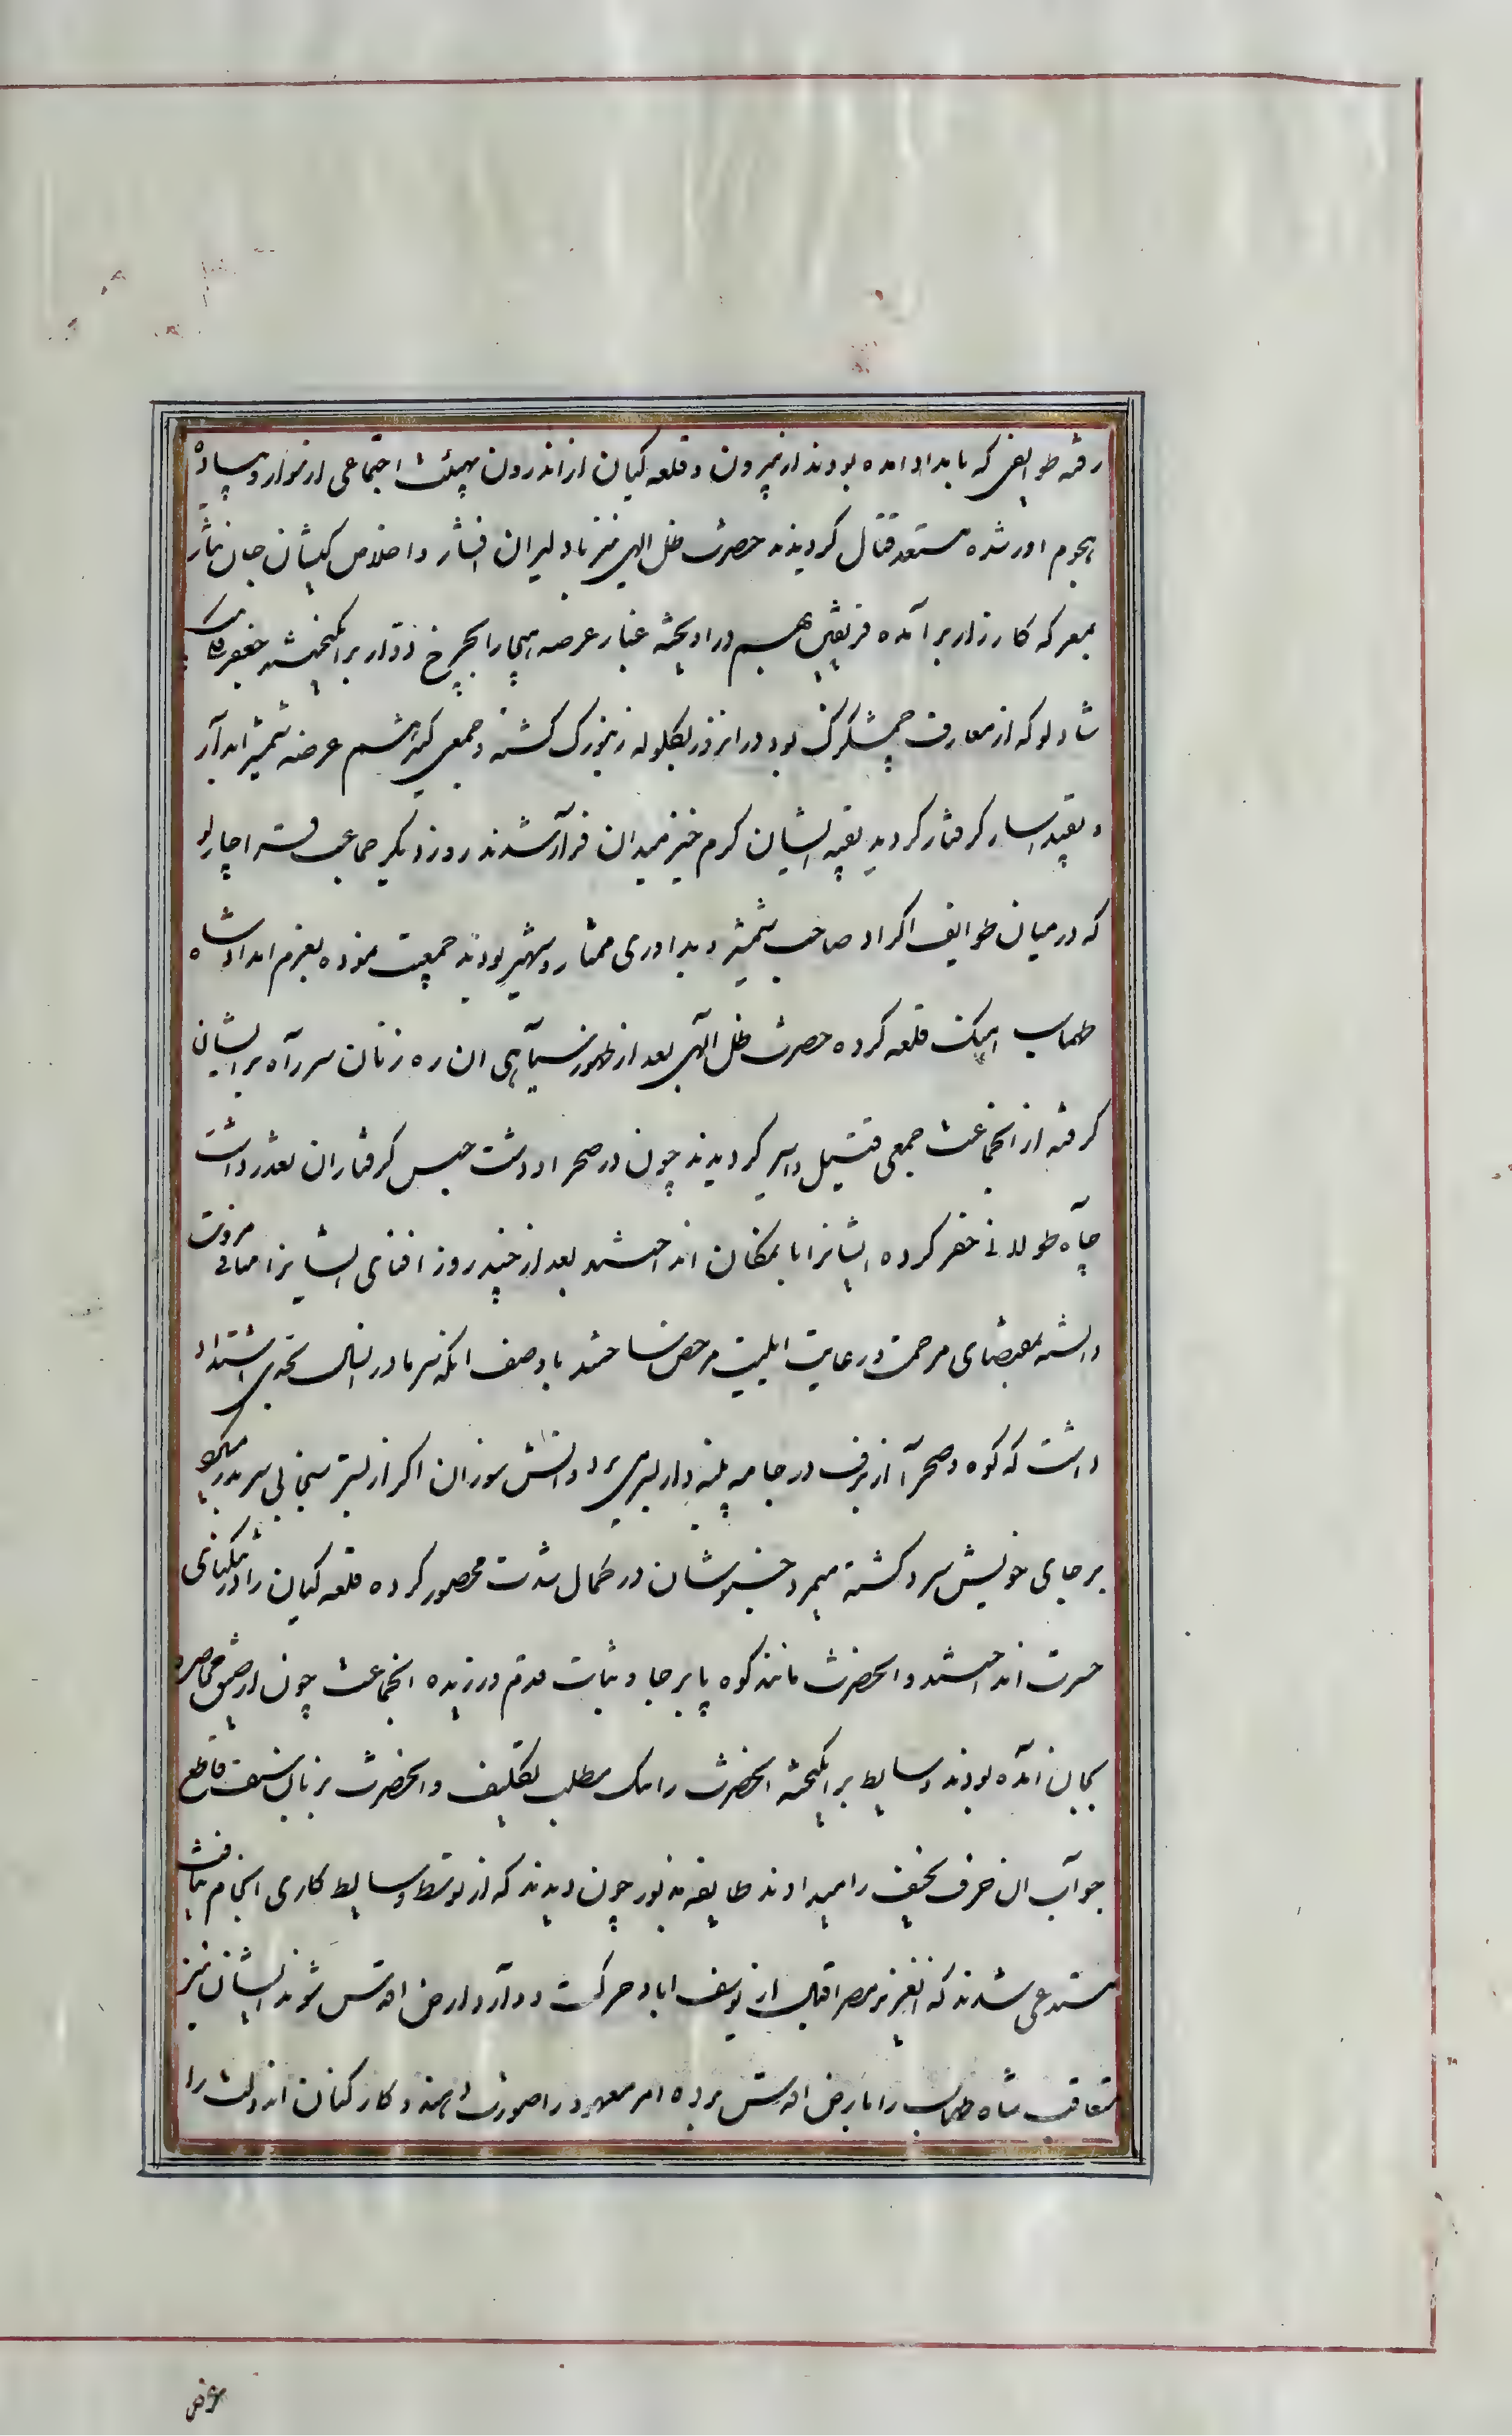 رفته طوایفی که بامداد امده بودند از بیرون و قلعه کیان از اندرون بهیئت اجتماعی از سوار و پیاده
هجوم اور شده مستعد قتال کردیدند حضرت ظل الهی نیز با دلیران افشار و اخلاص کیشان جان نثار
بمعرکه کارزار برآمده فریقین بهم دراویخته غبار عرصه هیجا را بچرخ دوار برانکیختند جعفر قلی بیک
شادلو که از معارف چمشکزک بود در انروز بکلوله زنبورک کشته و جمعی کثیر هم عرضه شمشیر ابدار
و بقید اسار کرفتار کردید بقیه ایشان کرم خیز میدان فرار شدند روز دیکر جماعت قراچارلو
که در میان طوایف اکراد صاحب شمشیر و بدلاوری ممتاز و شهیر بودند جمعیت نموده بعزم امداد شاه
طهماسب اهنک قلعه کرده حضرت ظل الهی بعد از ظهور سیاهی ان ره زنان سر راه بر ایشان
کرفته از انجماعت جمعی قتیل و اسیر کردیدند چون در صحرا و دشت حبس کرفتاران تعذر داشت
چاه طولانی حفر کرده ایشانرا بانمکان انداختند بعد از چند روز افنای ایشانرا منافی مروت
دانسته بمقتضای مرحمت و رعایت ایلیت مرخص ساختند با وصف انکه سرما در انسال بحدی اشتداد
داشت که کوه و صحرا از برف در جامه پنبه دار بسر می برد و اتش سوزان اکر از بستر سنجابی سر بدر میکرد
بر جای خویش سرد کشته میمرد خبوشان در کمال شدت محصور کرده قلعه کیان را در تنکنای
حسرت انداختند و انحضرت مانند کوه پا برجا و ثبات قدم ورزیده انجماعت چون از ضیق محاصره
بجان امده بودند وسایط برانکیخته انحضرت را بیک مطلب تکلیف و انحضرت بزبان سیف قاطع
جواب ان حرف سخیف را میدادند طایفه مذبور چون دیدند که از توسط وسایط کاری انجام نیافت
مستدعی شدند که انعزیز مصر اقبال از یوسف اباد حرکت و وارد ارض اقدس شوند ایشان نیز
متعاقب شاه طهماسب را بارض اقدس برده امر معهود را صورت دهند و کارکنان اندولت را
عرض